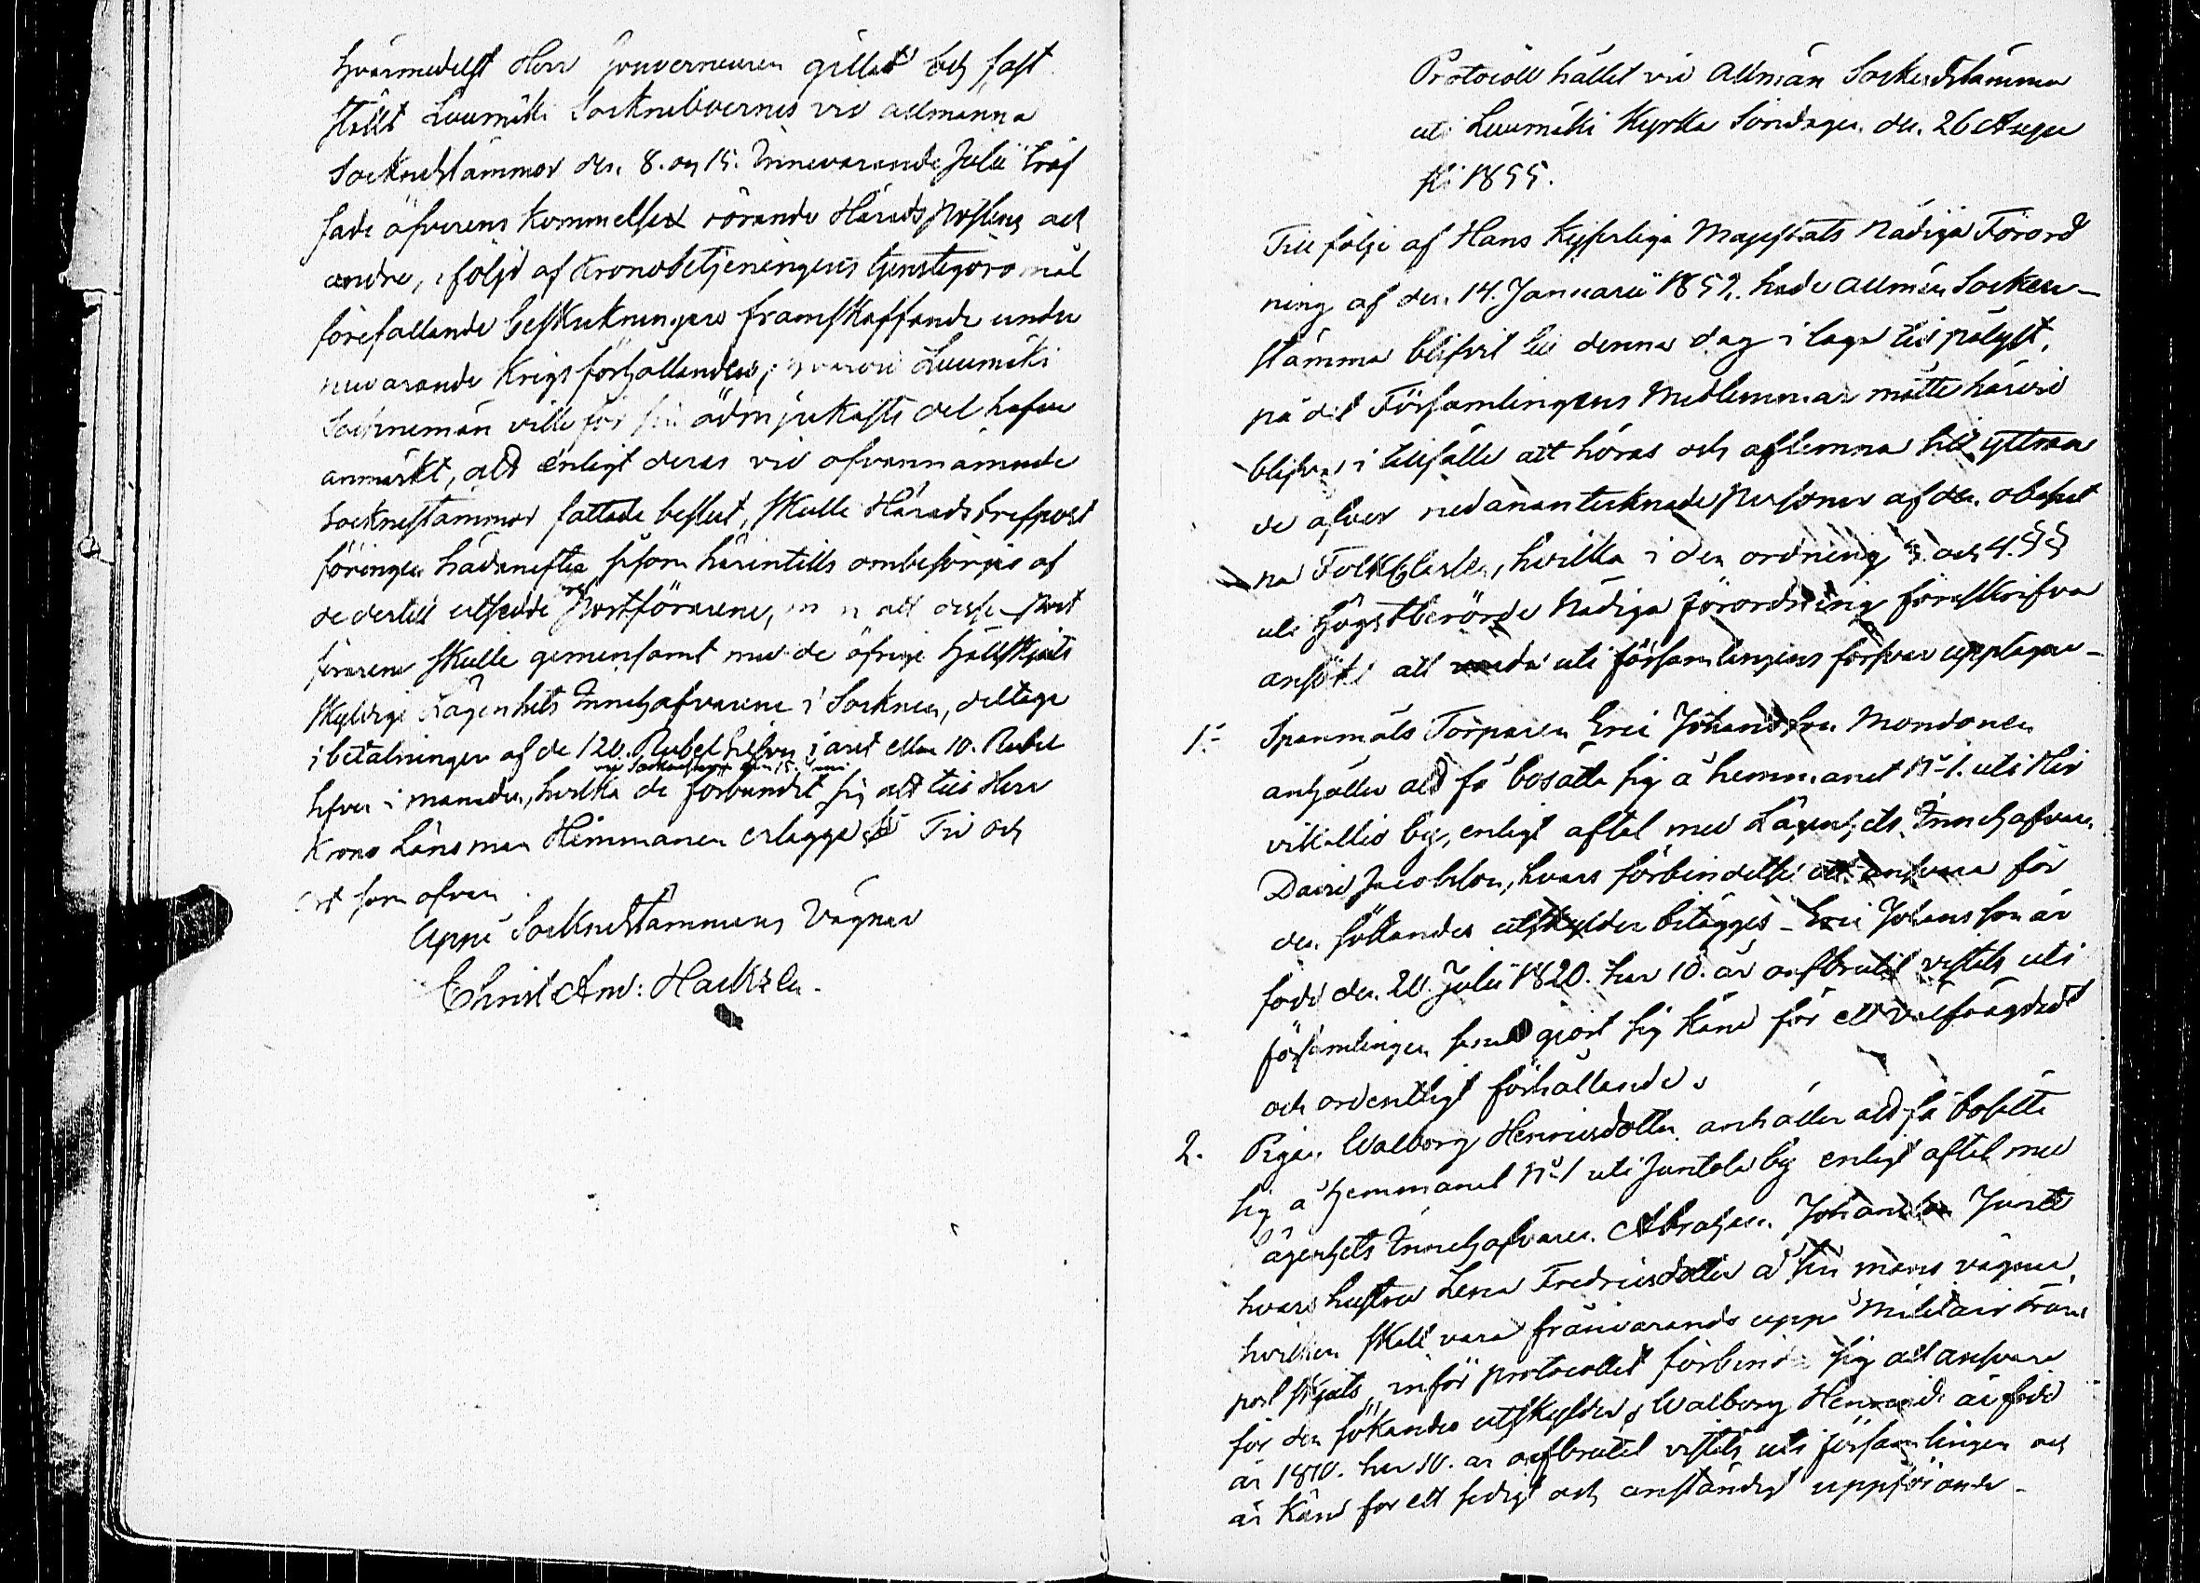 hvarmedelst Herr Gouverneuren gillat och fast
stält Luumäki Sockneboernes vid allmänna
Socknestämmor den 8. og 15. Innevarande Julii träf
fade öfverens kommelser rörande Härads Postens och
andra, i följd af Kronobetjeningens tjenstegöromål
förefallande beskickningars framskaffande under
nuvarande Krigsförhållanden, hvarvid Luumäki
Socknemän ville för sin ödmjukaste del hafva
anmärkt, att enligt deras vid ofvannämnde
Socknestämmor fattade beslut, skulle Härads brefpost
föringen hädanefter såsom härintills ombesörjas af
de dertill utsedde Postförarene, men att desse Post
förarene skulle gemensamt med de öfrige hållskjuts
skyldige Lägenhets Innehafvarene i Socknen, deltaga
i betalningen af de 120. Rubel Silfver i året eller 10. Rubel
vid Sockenstämman den 15. Juni
silfver i månaden, hvilka de förbundit sig att till Herr
Krono Länsman Himmanen erlägga. År Tid och
ort som ofvan.
Uppå Socknestämmans Vägnar
Christ. And: Hackzell.
Protocoll hållet vid Allmän Sockenstämma
uti Luumäki Kyrka Söndagen den 26 Augu
sti 1855.
Till följe af Hans Kejserliga Majestäts Nådiga Förord
ning af den 14. Januarii 1852. hade allmän Socken-
stämma blifvit till denna dag i laga tid pålyst,
på det Församlingens Medlemmar måtte härvid
blifva i tillfälle att höras och aflemna sitt yttran
de öfver nedanantecknade personer af den obesut
na Folkklassen, hvilka i den ordning 3. och 4. §§
uti Högstberörde Nådiga förordning föreskrifva
ansökt att uti församlingens försvar upptagas-
1:- Spanmåls Torparen Eric Johansson Mondonen
anhåller att få bosätta sig å hemmanet No 1. uti Hir
vikallio by, enligt aftal med Lägenhets Innehafvaren
David Jacobsson, hvars förbindelse att ansvara för
den sökandes utskylder bilägges - Eric Johansson är
född den 20. Julii 1820. har 10. år oafbrutit vistats uti
församlingen samt gjort sig känd för ett välfrägdadt
och ordentligt förhållande.
2. Pigan Walborg Henricsdotter anhåller att få bosätta
sig å hemmanet No 1 uti Juntola by enligt aftal med
Lägenhets Innehafvaren Abraham Johansson Juntt
hvars hustru Lena Fredricsdotter å sin mans vägnar,
hvilken skall vara frånvarande uppå Militair trans
port skjuts, inför protocollet förbinder sig att ansvara
för den sökandes utskylder, Walborg Henricsdr är född
år 1810. har 10. år oafbrutit vistats uti församlingen och
är känd för ett sedigt och anständigt uppförande.